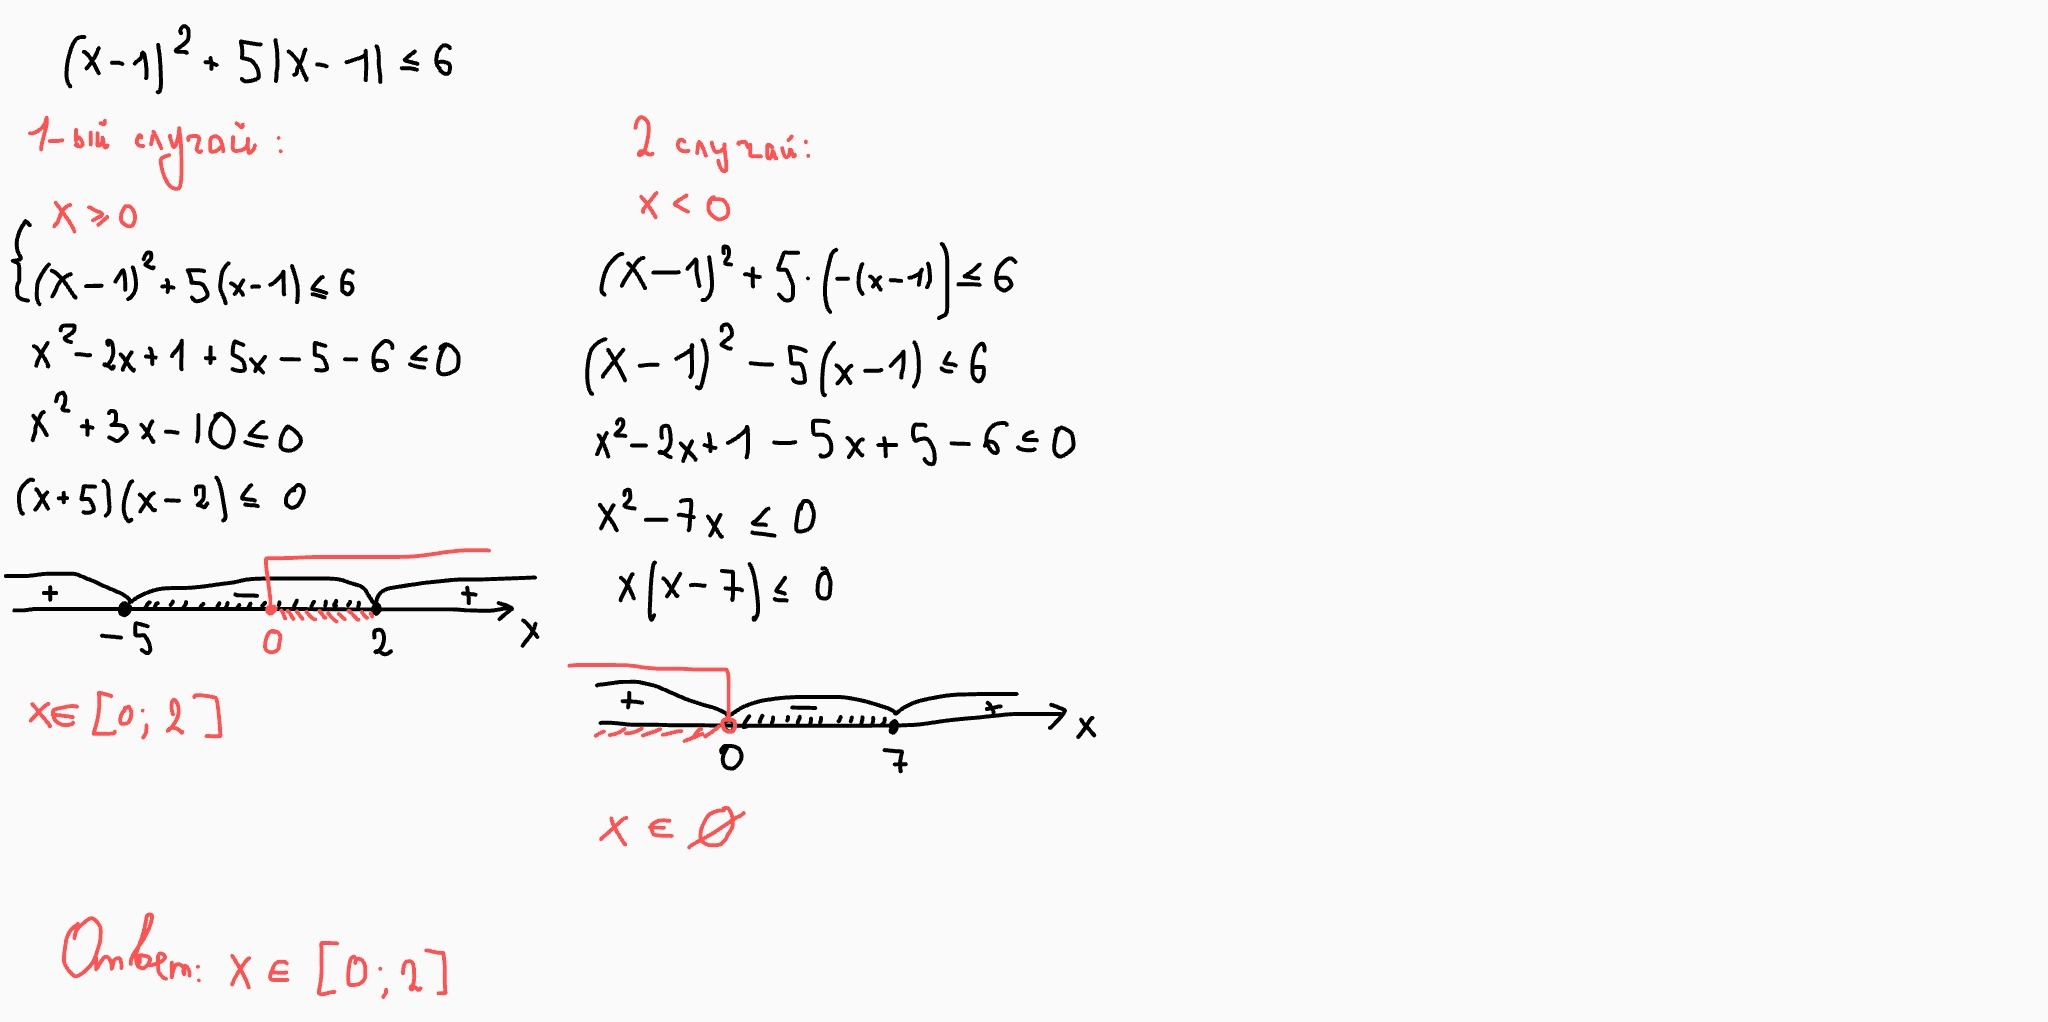 (x-1)² + 5|x-1| ≤ 6
1-ый случай:
x ≥ 0
{(x-1)² + 5(x-1) ≤ 6
x² - 2x + 1 + 5x - 5 - 6 ≤ 0
x² + 3x - 10 ≤ 0
(x+5)(x-2) ≤ 0
+ - +
-5 0 2 x
x ∈ [0; 2]
2 случай:
x < 0
(x-1)² + 5·(-(x-1)) ≤ 6
(x-1)² - 5(x-1) ≤ 6
x² - 2x + 1 - 5x + 5 - 6 ≤ 0
x² - 7x ≤ 0
x(x-7) ≤ 0
+ - +
0 7 x
x ∈ ∅
Ответ: x ∈ [0; 2]